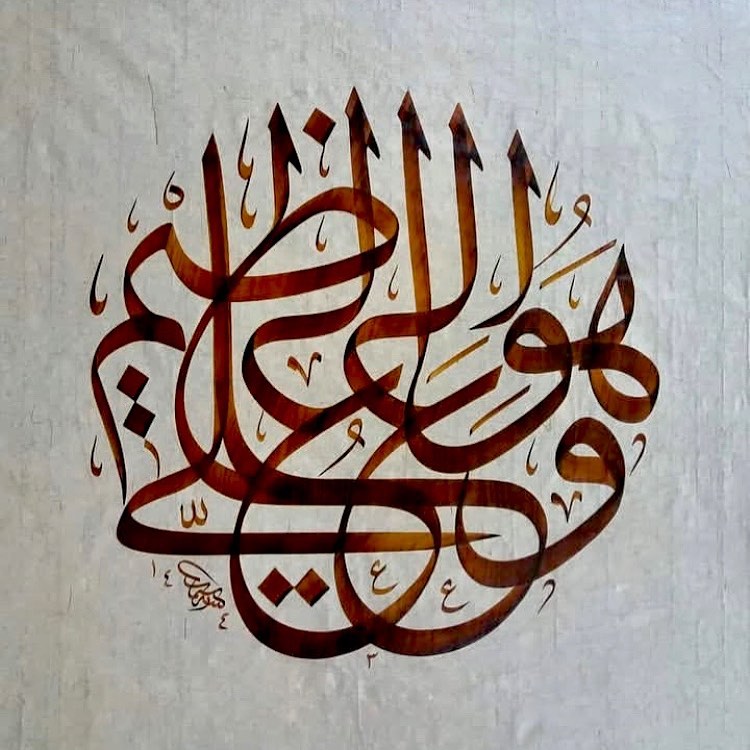 وَهُوَ الْعَلِيُّ الْعَظِيمُ